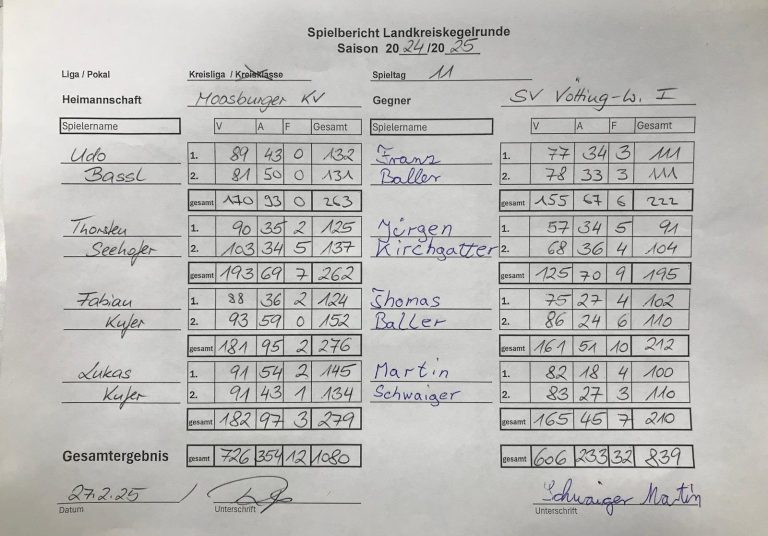 Spielbericht Landkreiskegelrunde
Saison 2024/2025
Liga / Pokal Kreisliga / Kreisklasse Spieltag 11
Heimannschaft Moosburger KV Gegner SV Vötting-W. I
Spielername V A F Gesamt Spielername V A F Gesamt
Udo 1. 89 43 0 132 Franz 1. 77 34 3 111
Bassl 2. 81 50 0 131 Baller 2. 78 33 3 111
gesamt 170 93 0 263 gesamt 155 67 6 222
Thorsten 1. 90 35 2 125 Jürgen 1. 57 34 5 91
Seehofer 2. 103 34 5 137 Kirchgatter 2. 68 36 4 104
gesamt 193 69 7 262 gesamt 125 70 9 195
Fabian 1. 88 36 2 124 Thomas 1. 75 27 4 102
Kufer 2. 93 59 0 152 Baller 2. 86 24 6 110
gesamt 181 95 2 276 gesamt 161 51 10 212
Lukas 1. 91 54 2 145 Martin 1. 82 18 4 100
Kufer 2. 91 43 1 134 Schwaiger 2. 83 27 3 110
gesamt 182 97 3 279 gesamt 165 45 7 210
Gesamtergebnis gesamt 726 354 12 1080 gesamt 606 233 32 839
27.2.25 / Schwaiger Martin
Datum Unterschrift Unterschrift